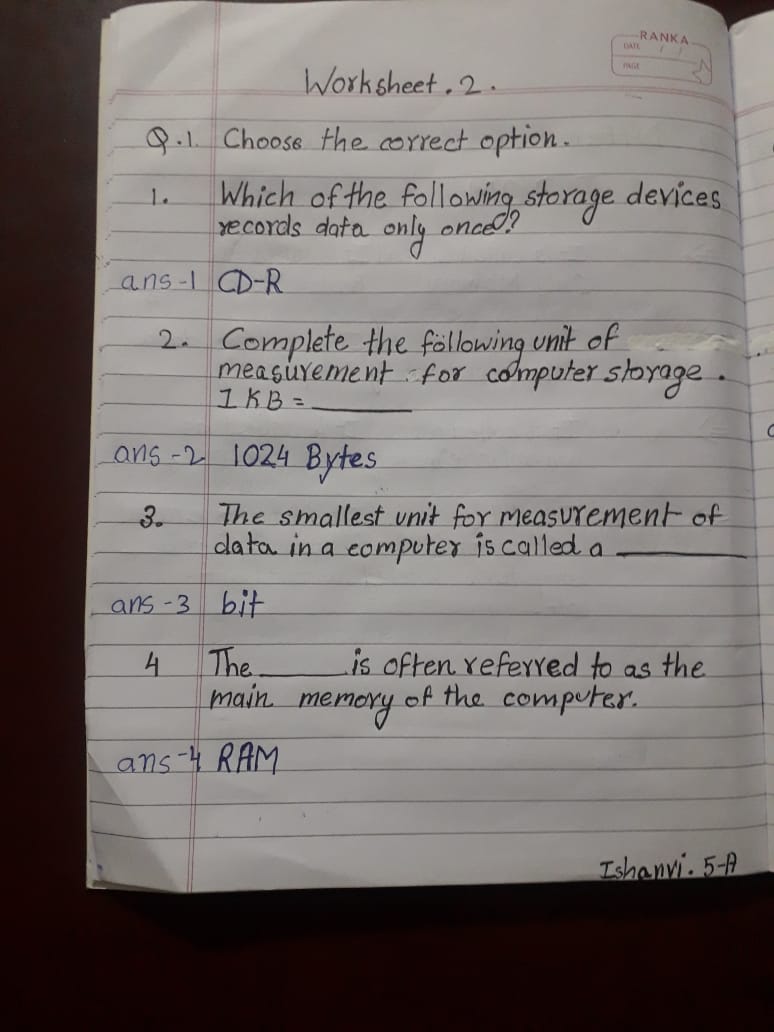 RANKA
DATE / /
PAGE
Worksheet. 2.
Q.1. Choose the correct option.
1. Which of the following storage devices
records data only once?
ans-1 CD-R
2. Complete the following unit of
measurement for computer storage.
1 KB = ______
ans-2 1024 Bytes
3. The smallest unit for measurement of
data in a computer is called a ______
ans-3 bit
4 The ______ is often referred to as the
main memory of the computer.
ans-4 RAM
Ishanvi. 5-A